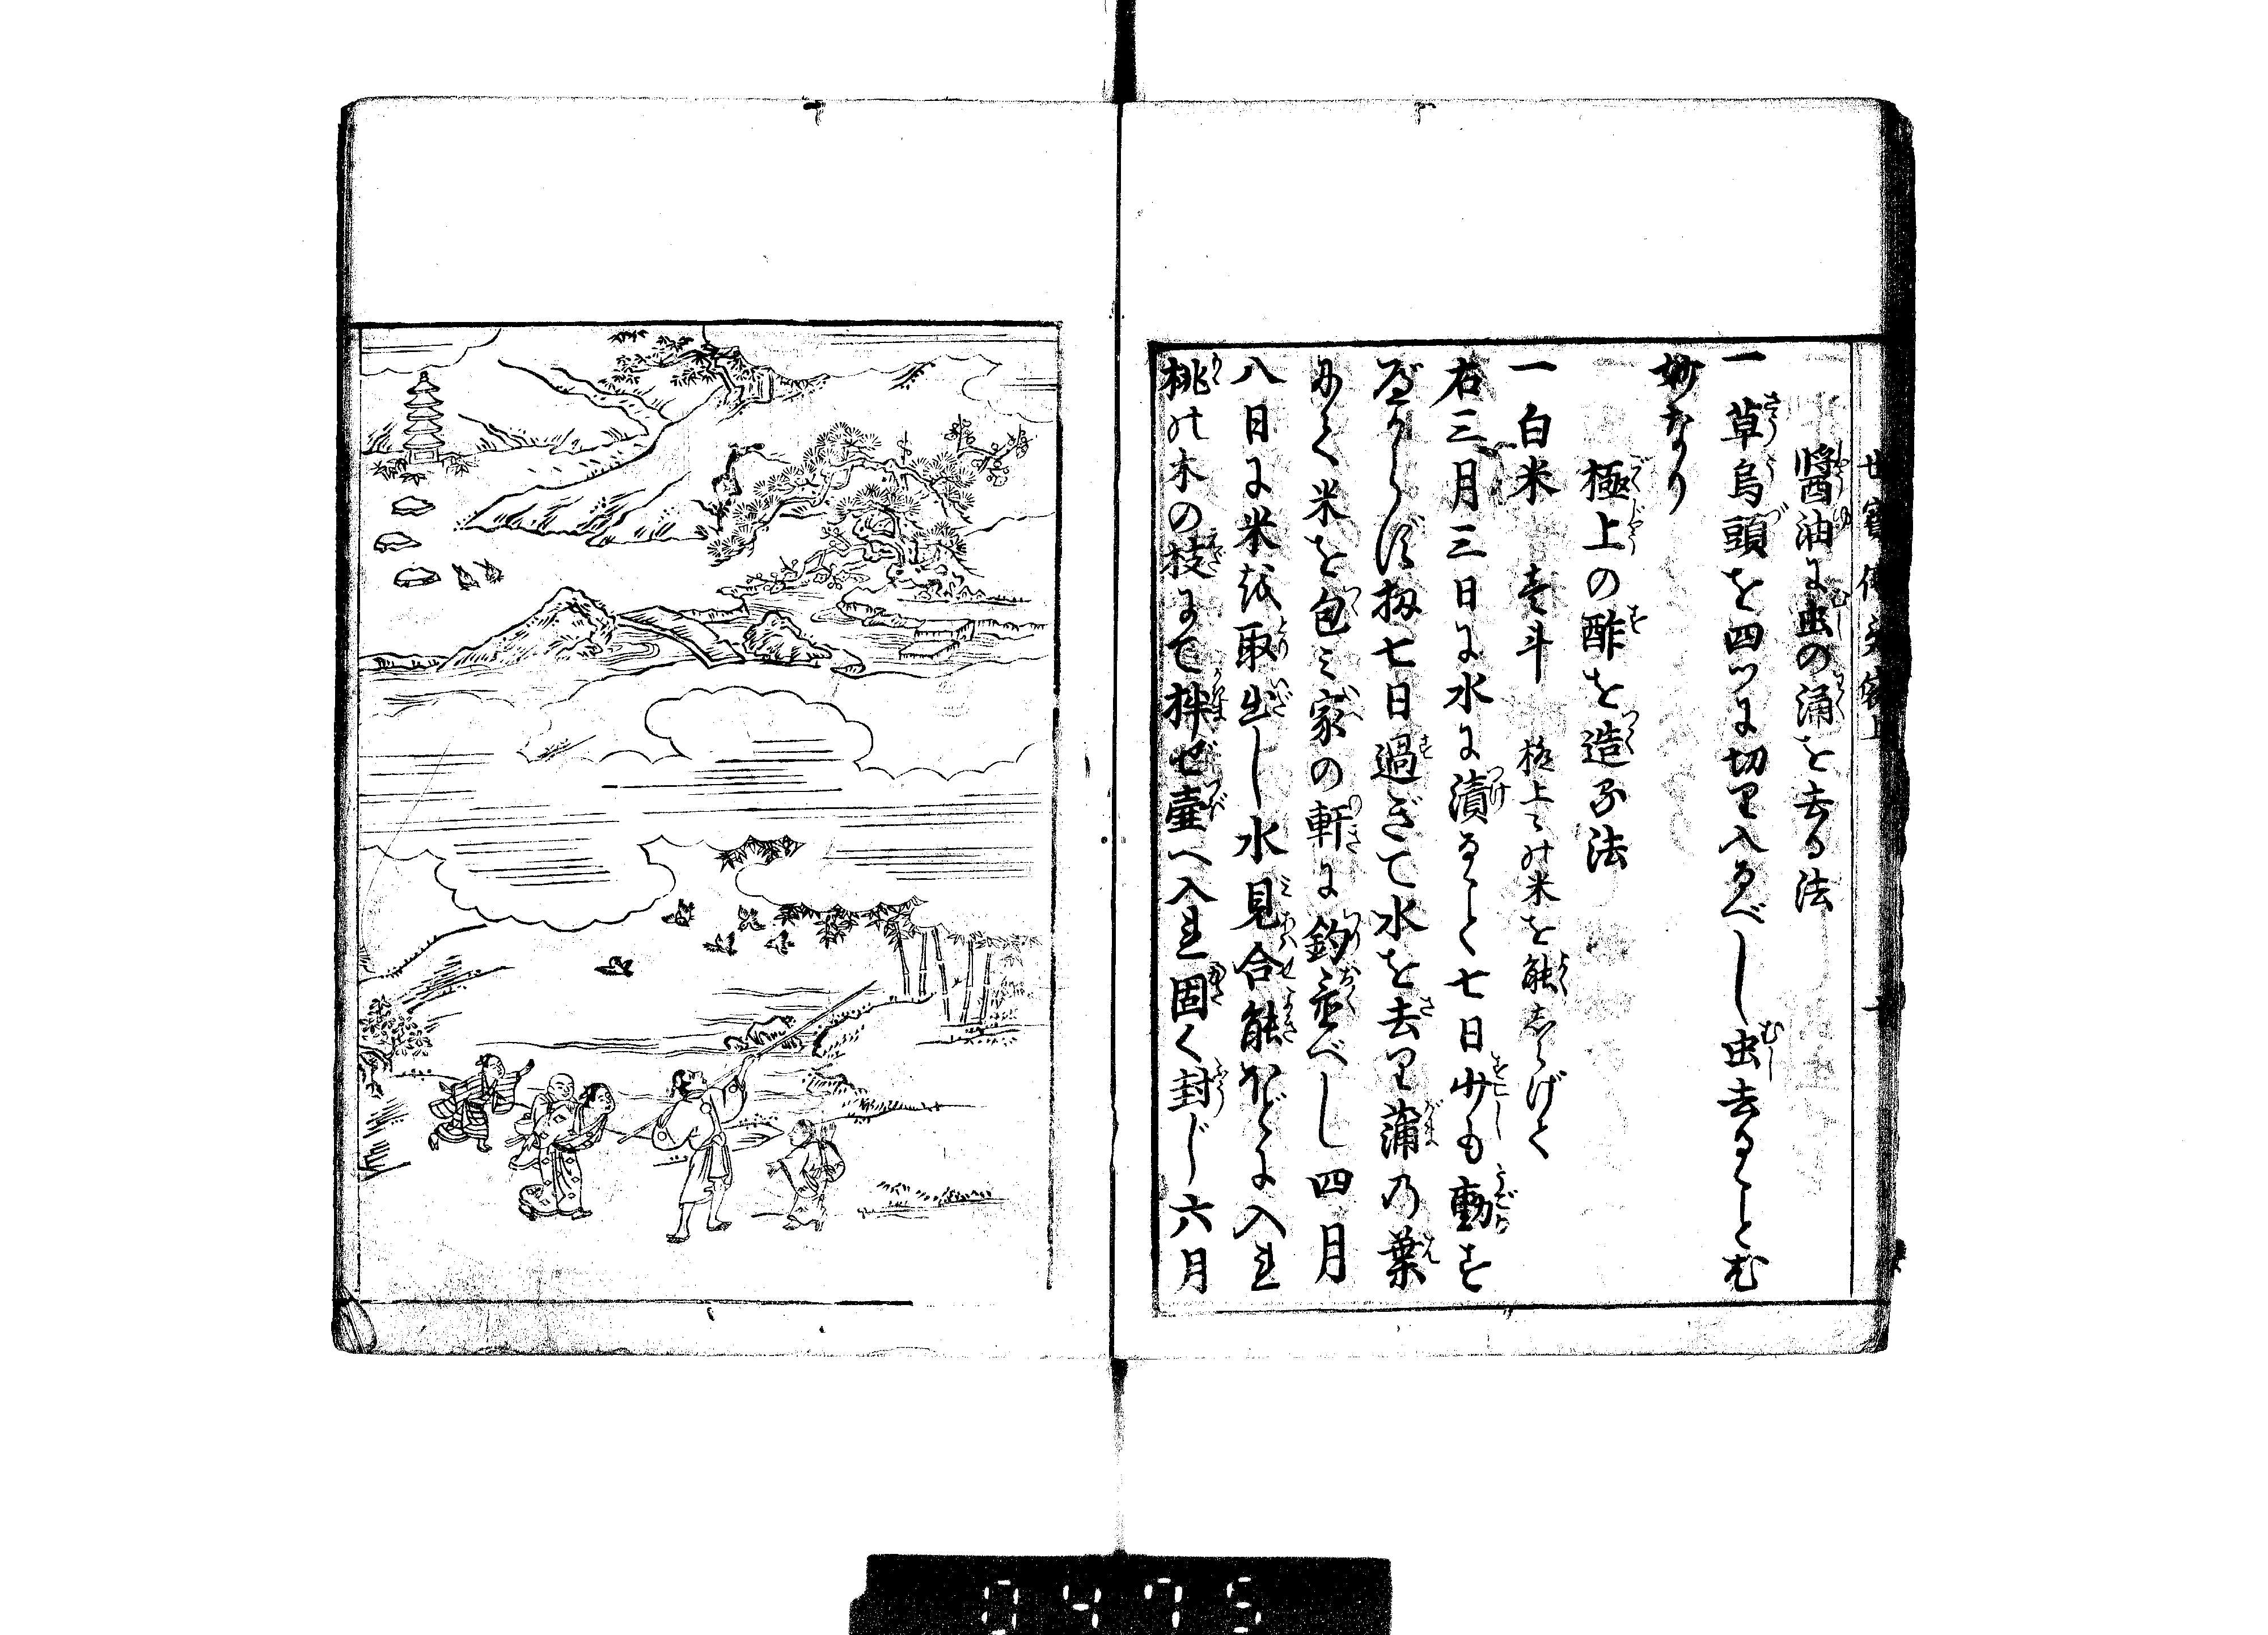 醤油に虫の涌を去る法
一草烏頭を四ツに切り入るべし虫去ること
妙なり
極上の酢を造る法
一白米 壱斗 極上々の米を能しらげて
右三月三日に水に漬るこ七日少も動す
べからず扨七日過ぎて水を去り蒲の葉
にて米を包ミ家の軒に釣置べし四月
八日に米を取出し水見合能ほどに入れ
桃の木の枝にて拌ぜ壷へ入れ固く封じ六月